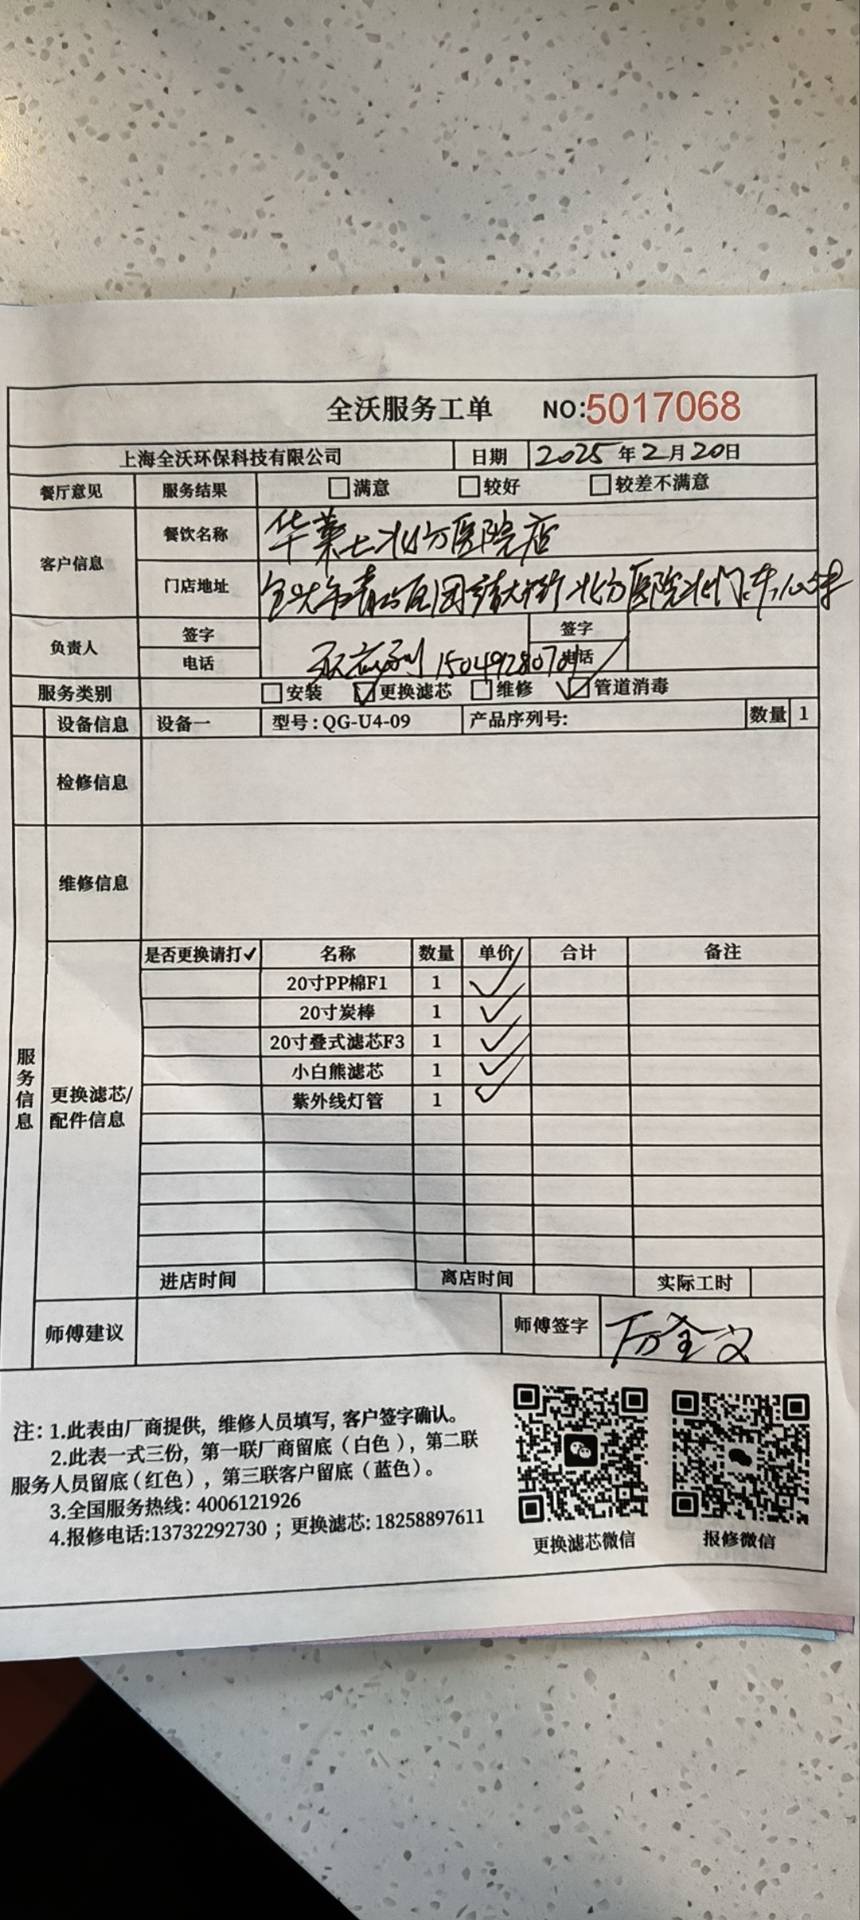 全沃服务工单 NO:5017068
上海全沃环保科技有限公司 日期 2025年2月20日
餐厅意见 服务结果 满意 较好 较差不满意
客户信息 餐饮名称 华莱士北方医院店
门店地址 包头市青山区团结大街北方医院北门东100米
负责人 签字 签字
电话 电话
服务类别 安装 更换滤芯 维修 管道消毒
设备信息 设备一 型号:QG-U4-09 产品序列号: 数量 1
检修信息
维修信息
服务信息
更换滤芯/配件信息
是否更换请打✓ 名称 数量 单价 合计 备注
20寸PP棉F1 1 ✓
20寸炭棒 1 ✓
20寸叠式滤芯F3 1 ✓
小白熊滤芯 1 ✓
紫外线灯管 1 ✓
进店时间 离店时间 实际工时
师傅建议 师傅签字
注: 1.此表由厂商提供, 维修人员填写, 客户签字确认。
2.此表一式三份, 第一联厂商留底 (白色), 第二联
服务人员留底 (红色), 第三联客户留底 (蓝色)。
3.全国服务热线: 4006121926
4.报修电话:13732292730 ; 更换滤芯: 18258897611
更换滤芯微信 报修微信